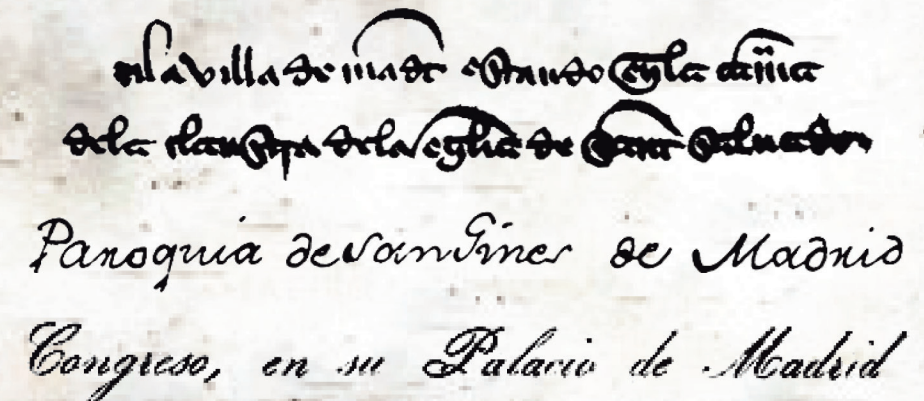 en la villa de madt estando en la camia
dela claustra dela eglia de sant saluador
Parroquia de San Gines de Madrid
Congreso, en su Palacio de Madrid